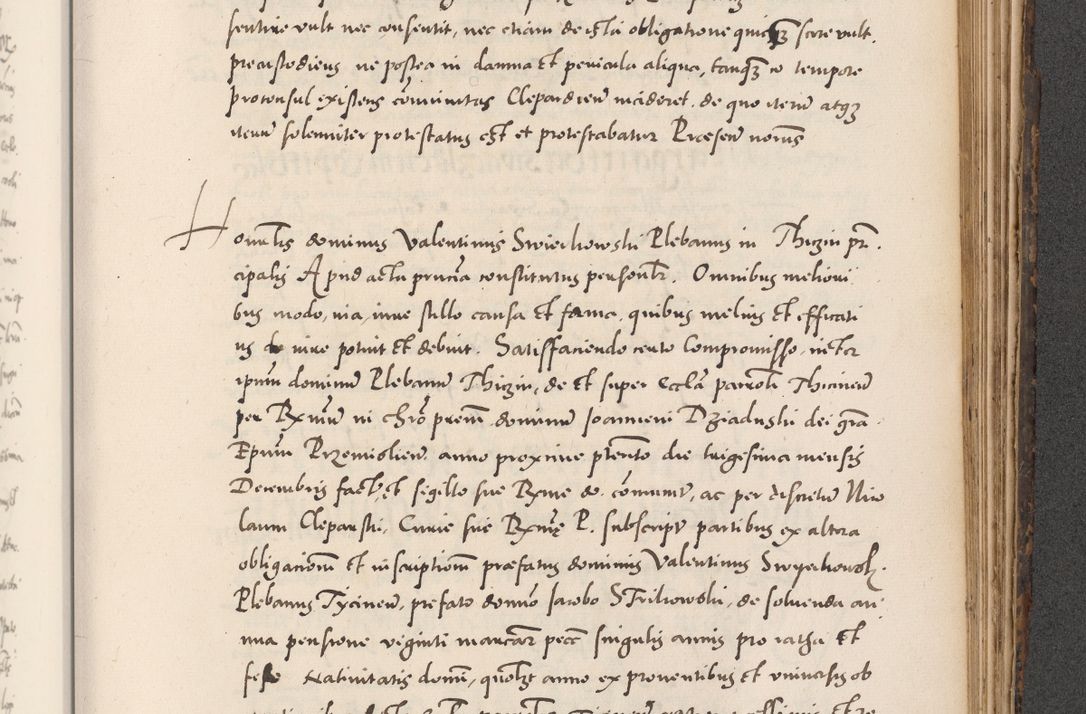 sentire vult nec consentit, nec etiam de ista obligatione quicq3 scire vult.
precustodiens ne postea in damna et pericula aliqua, tanq3 eo tempore
proconsul existens comunitas Clepardien incideret. de quo iterum atq3
iterum solemniter protestatus est et protestabatur Presen
Honorabilis dominus Valentinus Swiechowski Plebanus in Thiczin prin
cipalis Apud acta constitutus personlr. Omnibus meliori
bus modo, via, iure stillo causa et forma, quibus melius et efficati
us de iure potuit et debuit. Satisfaciendo certo Compromisso, inter
ipsum dominum Plebanum Thiczin, de et super Eccla parroli Thicinen
per Rxmum in chro prem dominum Joannem Dziaduski dei gra
Epum Przemislien anno proxime preterito die trigesima mensis
Decembris facto, et sigillo sue Rxme do. comunit, ac per discretum Nico
laum Clepauski, Curie sue Rxme P. subscript partibus ex altera
obligacionem et inscriptionem prefatus dominus Valentinus Swyechowsk
Plebanus Tycinen, prefato domino Jacobo Strikowski, de solvenda an
nua pensione viginti marcar pecc singulis annis pro ratha et
festo Nativitatis domini, quolibet anno ex proventibus et universis ob